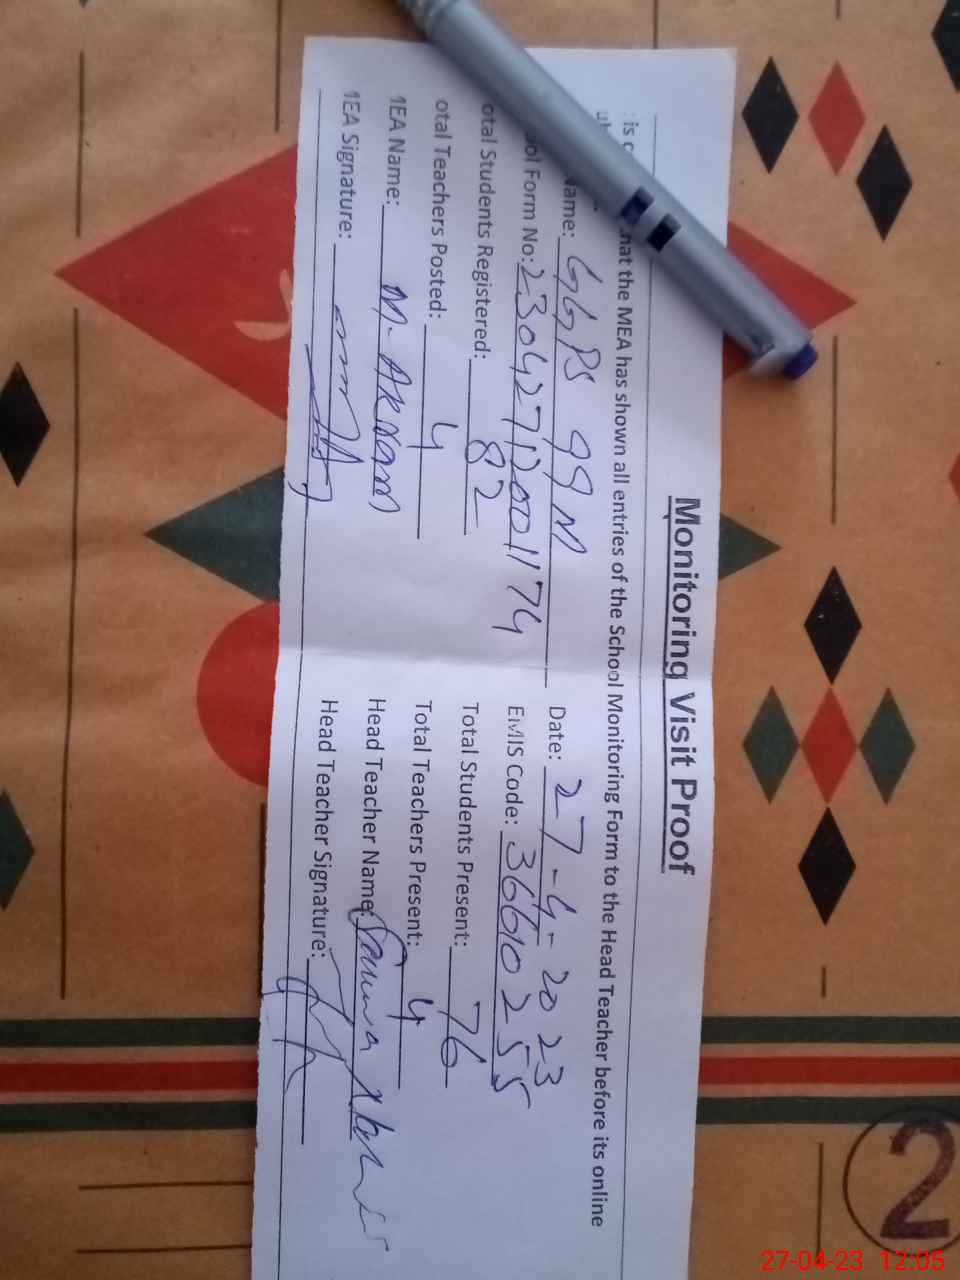 Monitoring Visit Proof
hat the MEA has shown all entries of the School Monitoring Form to the Head Teacher before its online
ame: GGPS 99 M Date: 27-4-2023
ol Form No: 230427120011 74 EMIS Code: 36610255
otal Students Registered: 82 Total Students Present: 76
otal Teachers Posted: 4 Total Teachers Present: 4
MEA Name: M. Akram Head Teacher Name:
MEA Signature: Head Teacher Signature:
2
27-04-23 12:05